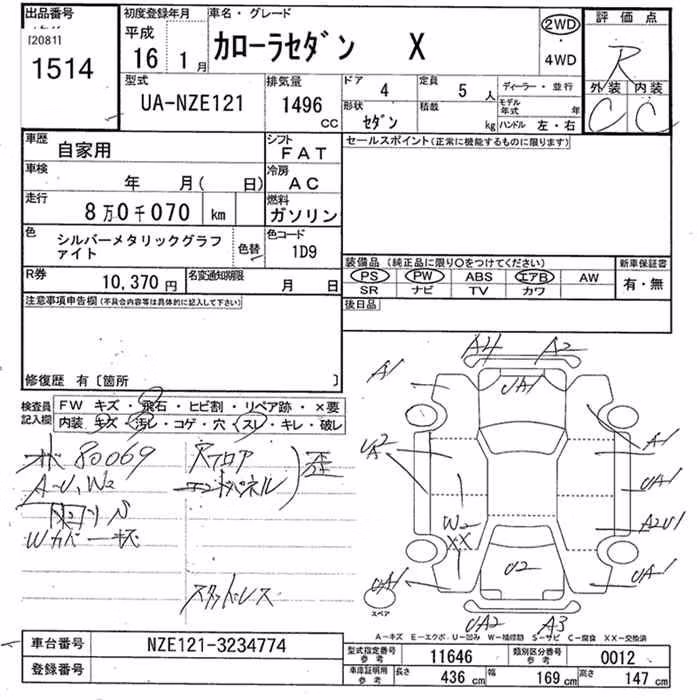 出品番号
[20811]
1514
初度登録年月
平成
16 1月
車名・グレード
カローラセダン X
2WD
・
4WD
評価点
R
外装 内装
C C
型式
UA-NZE121
排気量
1496
CC
ドア
4
定員
5 人
形状
セダン
積載
kg
ディーラー・並行
モデル年式 年
ハンドル 左・右
車歴
自家用
シフト
FAT
車検
年 月( 日)
冷房
AC
走行
8万0千070 km
燃料
ガソリン
色
シルバーメタリックグラファイト
色替
色コード
1D9
R券
10,370円
名変通知期限
月 日
セールスポイント(正常に機能するものに限ります)
装備品(純正品に限り○をつけてください)
PS PW ABS エアB AW
SR ナビ TV カワ
新車保証書
有・無
後日品
注意事項申告欄(不具合内容等は具体的に記入して下さい)
修復歴 有〔箇所 〕
検査員記入欄
FW キズ・飛石・ヒビ割・リペア跡・×要
内装・キズ・汚レ・コゲ・穴・スレ・キレ・破レ
80069
A-U,W2
Wカバー一杯
Rフロア
エンドパネル
歪
スタッドレス
A4 A2
A1
UA1
UA2
A1
UA1
A2U1
W2
XX
U2
UA1
UA1
UA2 A3
スペア
A-キズ E-エクボ U-凹み W-補修跡 S-サビ C-腐食 XX-交換済
車台番号
NZE121-3234774
登録番号
型式指定番号
参考
11646
類別区分番号
参考
0012
車庫証明用
参考
長さ
436 cm
幅
169 cm
高さ
147 cm